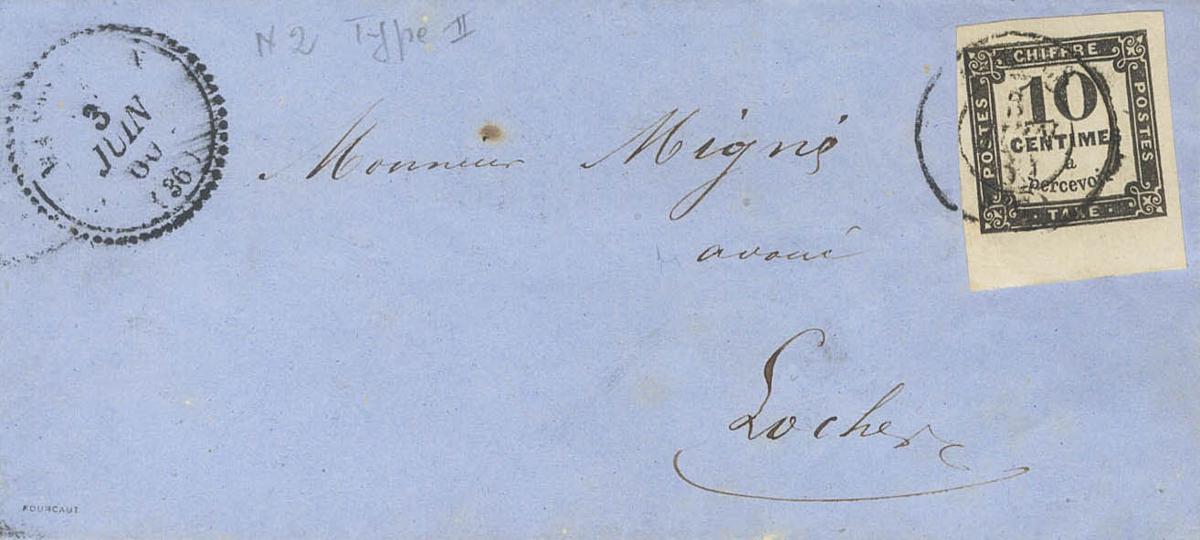 N 2 Type II
3
JUIN
60
(36)
Monsieur Migné
avoué
Loches
CHIFFRE
POSTES
10
CENTIMES
à
percevoir
POSTES
TAXE
FOURCAUT